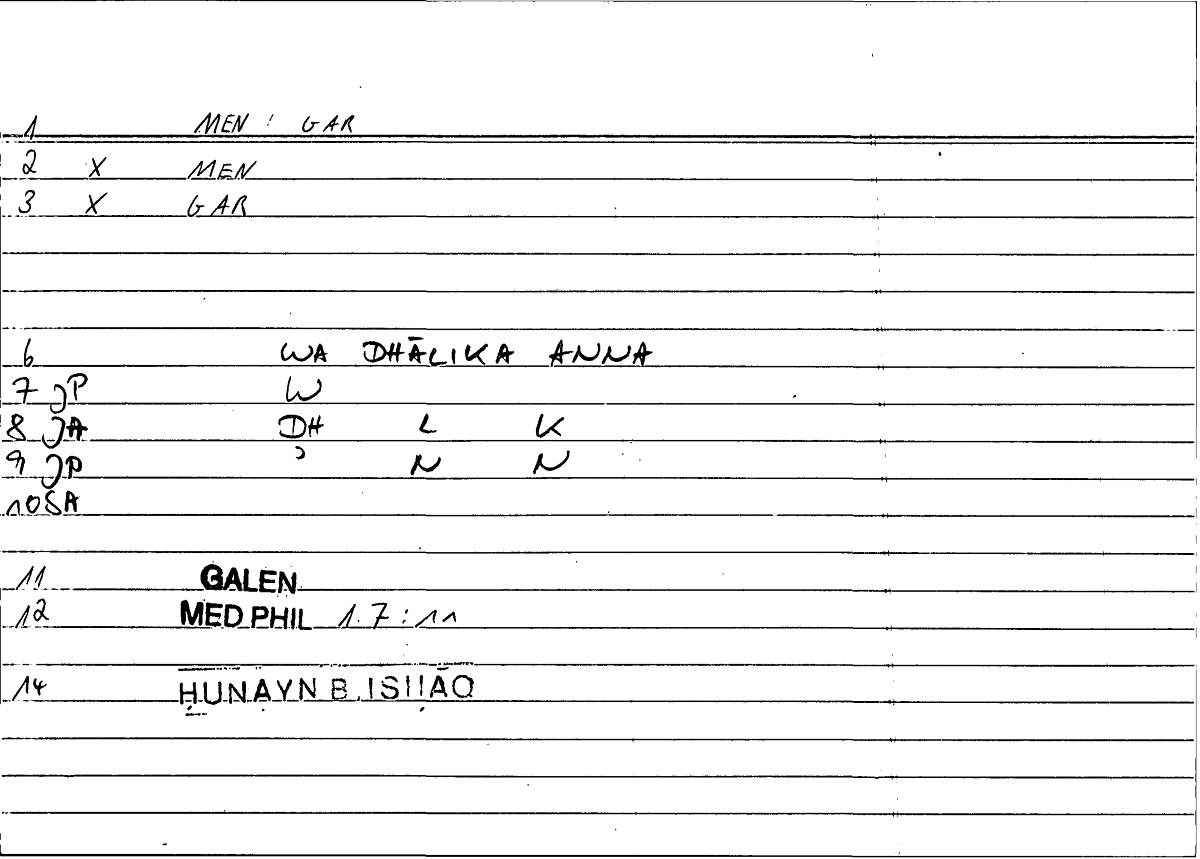 1 MEN : GAR
2 X MEN
3 X GAR
6 WA DHĀLIKA ANNA
7 JP W
8 JA DH L K
9 JP ʾ N N
10 SA
11 GALEN
12 MED PHIL 1.7 : 11
14 ḤUNAYN B. ISḤĀQ